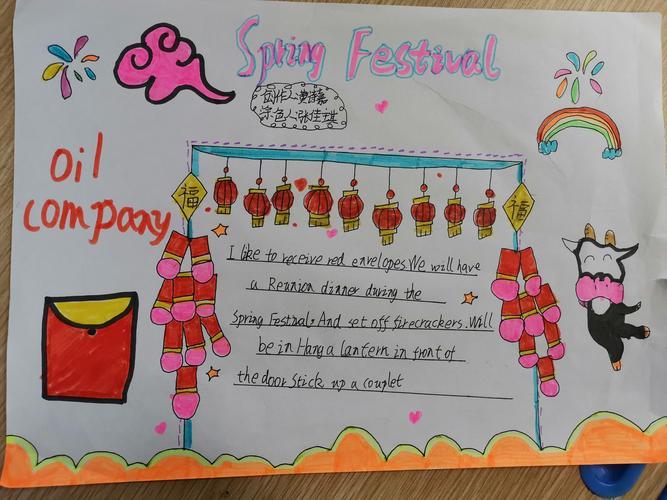 Spring Festival
创作人
涂色人张佳琪
oil
company
福
福
I like to receive red envelopes.We will have
a Reunion dinner during the
Spring Festival.And set off firecrackers.Will
be in Hang a lantern in front of
the door stick up a couplet